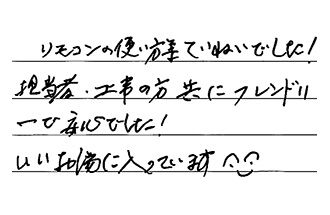 リモコンの使い方等ていねいでした!
担当者・工事の方共にフレンドリ
ーで安心でした!
いい お湯に入っています